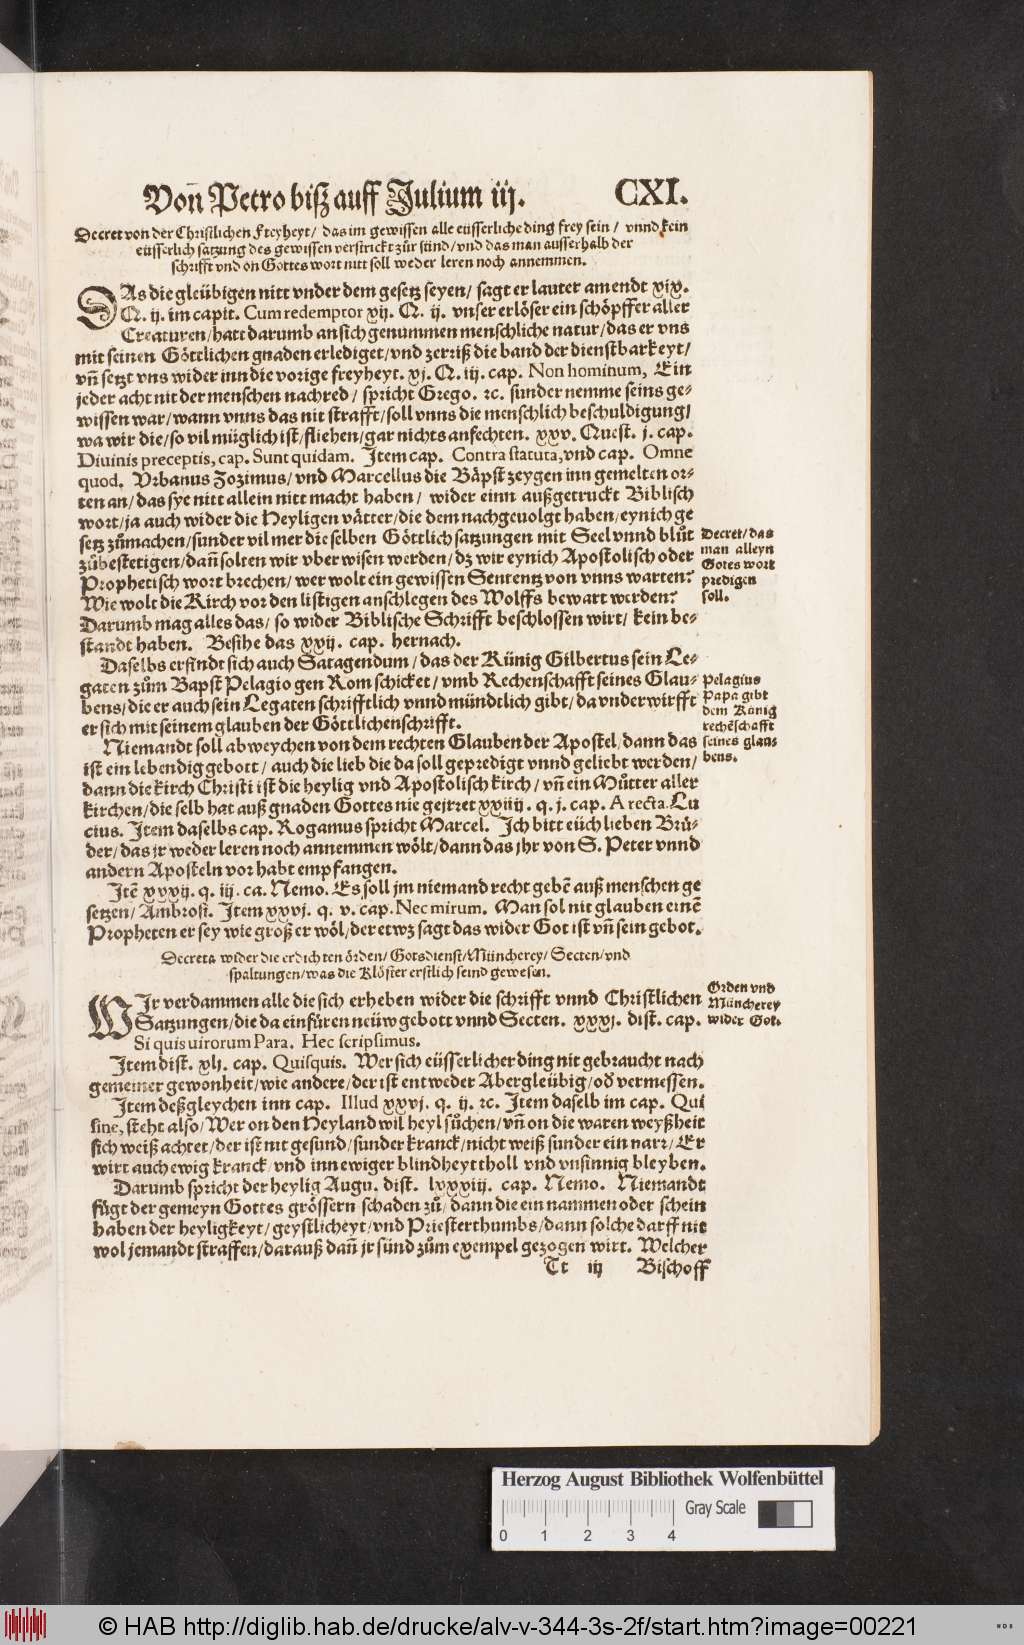 Von̄ Petro biß auff Julium iij. CXI.
Decret von der Christlichen Freyheyt/ das im gewissen alle eüsserliche ding frey sein/ vnnd kein
eüsserlich satzung des gewissen verstrickt zůr sünd/ vnd das man ausserhalb der
schrifft vnd on Gottes wort nitt soll weder leren noch annemmen.
DAs die gleübigen nitt vnder dem gesetz seyen/ sagt er lauter am endt xix.
Q. ij. im capit. Cum redemptor xij. Q. ij. vnser erlöser ein schöpffer aller
Creaturen/ hatt darumb an sich genummen menschliche natur/ das er vns
mit seinen Göttlichen gnaden erlediget/ vnd zerriß die band der dienstbarkeyt/
vn̄ setzt vns wider inn die vorige freyheyt. xj. Q. iij. cap. Non hominum, Ein
jeder acht nit der menschen nachred/ spricht Grego. ꝛc. sunder nemme seins ge-
wissen war/ wann vnns das nit strafft/ soll vnns die menschlich beschuldigung/
wa wir die/ so vil müglich ist/ fliehen/ gar nichts anfechten. xxv. Quest. j. cap.
Diuinis preceptis, cap. Sunt quidam. Item cap. Contra statuta, vnd cap. Omne
quod. Vrbanus Zozimus/ vnd Marcellus die Bäpst zeygen inn gemelten or-
ten an/ das sye nitt allein nitt macht haben/ wider einn außgetruckt Biblisch
wort/ ja auch wider die Heyligen vätter/ die dem nachgeuolgt haben/ eynich ge
setz zůmachen/ sunder vil mer die selben Göttlich satzungen mit Seel vnnd blůt
zůbestetigen/ dan̄ solten wir vberwisen werden/ dz wir eynich Apostolisch oder
Prophetisch wort brechen/ wer wolt ein gewissen Sententz von vnns warten?
Wie wolt die Kirch vor den listigen anschlegen des Wolffs bewart werden?
Darumb mag alles das/ so wider Biblische Schrifft beschlossen wirt/ kein be-
standt haben. Besihe das xxij. cap. hernach.
Decret/ das
man alleyn
Gotes wort
predigen
soll.
Daselbs erfindt sich auch Satagendum/ das der Künig Gilbertus sein Le-
gaten zům Bapst Pelagio gen Rom schicket/ vmb Rechenschafft seines Glau-
bens/ die er auch sein Legaten schrifftlich vnnd mündtlich gibt/ da vnderwirfft
er sich mit seinem glauben der Göttlichen schrifft.
Pelagius
Papa gibt
dem Künig
rechēschafft
seines glau-
bens.
Niemandt soll abweychen von dem rechten Glauben der Apostel/ dann das
ist ein lebendig gebott/ auch die lieb die da soll gepredigt vnnd geliebt werden/
dann die kirch Christi ist die heylig vnd Apostolisch kirch/ vn̄ ein Můtter aller
kirchen/ die selb hat auß gnaden Gottes nie gejrret xxiiij. q. j. cap. A recta. Lu
cius. Item daselbs cap. Rogamus spricht Marcel. Ich bitt eüch lieben Brü-
der/ das jr weder leren noch annemmen wölt/ dann das jhr von S. Peter vnnd
andern Aposteln vor habt empfangen.
Itē xxxij. q. iij. ca. Nemo. Es soll jm niemand recht gebē auß menschen ge
setzen/ Ambrosi. Item xxvj. q. v. cap. Nec mirum. Man sol nit glauben einē
Propheten er sey wie groß er wöl/ der etwz sagt das wider Got ist vn̄ sein gebot.
Decreta wider die erdichten örden/ Gotsdienst/ Müncherey/ Secten/ vnd
spaltungen/ was die Klöster erstlich seind gewesen.
WJr verdammen alle die sich erheben wider die schrifft vnnd Christlichen
Satzungen/ die da einfüren neüw gebott vnnd Secten. xxxj. dist. cap.
Si quis uirorum Para. Hec scripsimus.
Orden vnd
Müncherey
wider Got.
Item dist. xlj. cap. Quisquis. Wer sich eüsserlicher ding nit gebraucht nach
gemeiner gewonheit/ wie andere/ der ist entweder Abergleübig/ od̄ vermessen.
Item deßgleychen inn cap. Illud xxvj. q. ij. ꝛc. Item daselb im cap. Qui
sine, steht also/ Wer on den Heyland wil heyl sůchen/ vn̄ on die waren weyßheit
sich weiß achtet/ der ist nit gesund/ sunder kranck/ nicht weiß sunder ein narr/ Er
wirt auch ewig kranck/ vnd inn ewiger blindheyt tholl vnd vnsinnig bleyben.
Darumb spricht der heylig Augu. dist. lxxxiij. cap. Nemo. Niemandt
fůgt der gemeyn Gottes grössern schaden zů/ dann die ein nammen oder schein
haben der heyligkeyt/ geystlicheyt/ vnd Priesterthumbs/ dann solche darff nit
wol jemandt straffen/ darauß dan̄ jr sünd zům exempel gezogen wirt. Welcher
Tt iij Bischoff
Herzog August Bibliothek Wolfenbüttel
Gray Scale
0 1 2 3 4
© HAB http://diglib.hab.de/drucke/alv-v-344-3s-2f/start.htm?image=00221